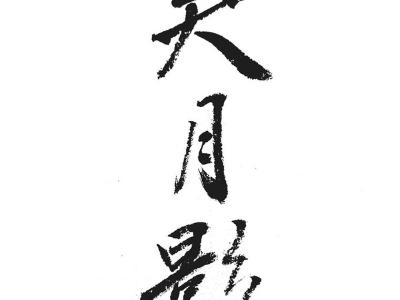 天月影